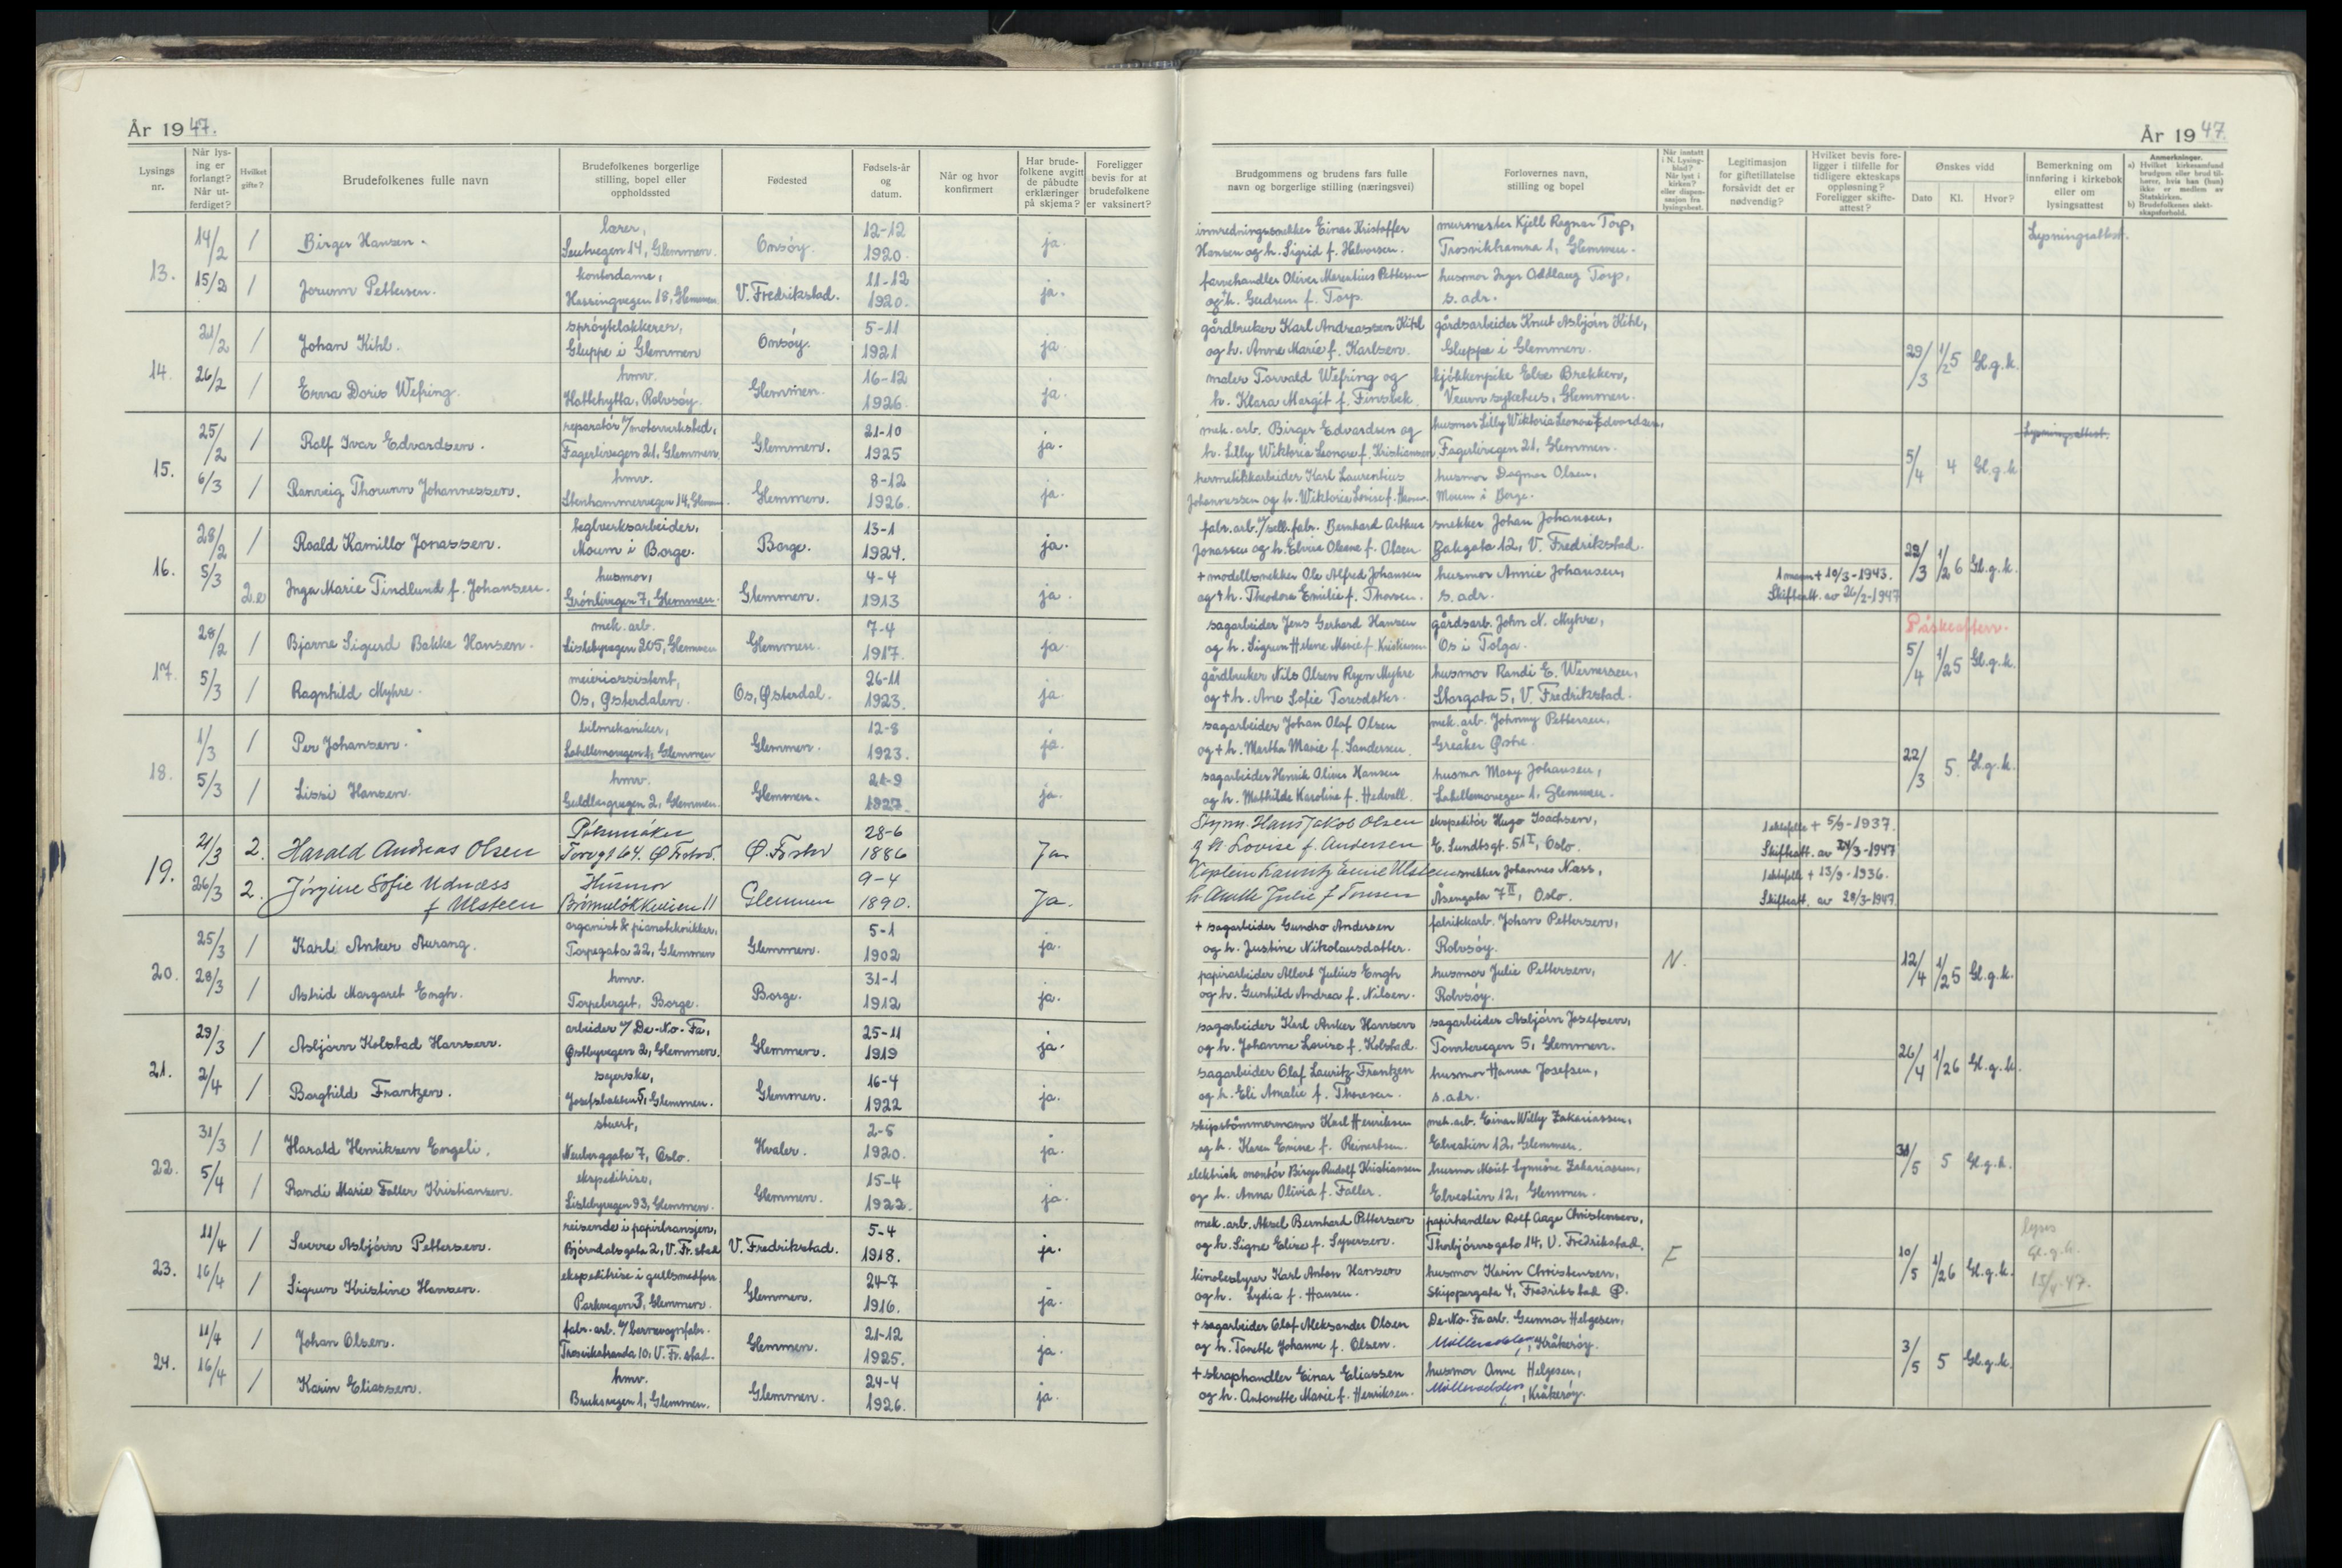 År 1947.
Lysings nr.
Når lysing er forlangt? Når utferdiget?
Hvilket gifte?
Brudefolkenes fulle navn
Brudefolkenes borgerlige stilling, bopel eller oppholdssted
Fødested
Fødsels-år og datum.
Når og hvor konfirmert
Har brudefolkene avgitt de påbudte erklæringer på skjema?
Foreligger bevis for at brudefolkene er vaksinert?
13.
14/2 1 Birger Hansen. lærer, Glemmen. Onsøy. 12-12 1920. ja.
15/2 1 Jorunn Pettersen. kontordame, Hassingvegen 18, Glemmen V. Fredrikstad. 11-12 1920. ja.
14.
21/2 1 Johan Kihl. Gluppe i Glemmen Onsøy. 5-11 1921 ja
26/2 1 Erna Doris Wefring. hmv. Hatlehytta, Rolvsøy. Glemmen. 16-12 1926. ja.
15.
25/2 1 Rolf Ivar Edvardsen. reparatør v/motorverksted, Fagerlivegen 21, Glemmen Glemmen. 21-10 1925 ja.
6/3 1 Ranveig Thorunn Johannessen. hmv. Stenhammervegen 14, Glemmen. Glemmen. 8-12 1926. ja.
16.
28/2 1 Roald Kamillo Jonassen. teglverksarbeider, Moum i Borge. Borge. 13-1 1924. ja.
5/3 2.e Inga Marie Tindlund f. Johansen. husmor, Grønlivegen 7, Glemmen. Glemmen. 4-4 1913 ja.
17.
28/2 1 Bjarne Sigurd Bakke Hansen. mek. arb. Lislebyvegen 205, Glemmen Glemmen. 7-4 1917. ja.
5/3 1 Ragnhild Myhre. meieriassistent, Os, Østerdalen. Os, Østerdal. 26-11 1923. ja.
18.
1/3 1 Per Johansen. bilmekaniker, Lahellemovegen 1, Glemmen Glemmen. 12-8 1923. ja.
5/3 1 Lissi Hansen. hmv. Guldbergvegen 2, Glemmen. Glemmen. 21-9 1927. ja.
19.
21/3 2. Harald Andreas Olsen Pølsemaker Torvgt 64. Ø. Fr.stad. Ø. Fr.stad 28-6 1886 Ja
26/3 2. Jørgine Sofie Udnæss f Ulsteen Husmor 11 Glemmen 9-4 1890. Ja.
20.
25/3 1 Karl Anker Aurang. organist & pianotekniker, Torpegata 22, Glemmen Glemmen. 5-1 1902 ja.
28/3 1 Astrid Margaret Engh. hmv. Torpeberget, Borge. Borge. 31-1 1912 ja.
21.
29/3 1 Asbjørn Kolstad Hansen. arbeider v/De-No-Fa, Østbyvegen 2, Glemmen. Glemmen. 25-11 1919 ja.
2/4 1 Borghild Frantzen. syerske, Josefsbakken 5, Glemmen. Glemmen. 16-4 1922 ja.
22.
31/3 1 Harald Henriksen Engeli. stuert, Neuberggata 7, Oslo. Hvaler. 2-5 1920. ja.
5/4 1 Randi Marie Faller Kristiansen. ekspeditrise, Lislebyvegen 93, Glemmen. Glemmen. 15-4 1922. ja.
23.
11/4 1 Sverre Asbjørn Pettersen. reisende i papirbransjen, Bjørndalsgata 2, V. Fr.stad V. Fredrikstad. 5-4 1918. ja.
16/4 1 Sigrun Kristine Hansen. ekspeditrise i gullsmedforr. Parkvegen 3, Glemmen. Glemmen. 24-7 1916. ja.
24.
11/4 1 Johan Olsen. fabr. arb. v/barnevognfabr. Trosvikstranda 10, V. Fr.stad. Glemmen. 21-12 1925. ja.
16/4 1 Karin Eliassen. hmv. Bruksvegen 1, Glemmen. Glemmen. 24-4 1926. ja.
År 1947.
Brudgommens og brudens fars fulle navn og borgerlige stilling (næringsvei)
Forlovernes navn, stilling og bopel
Når innsatt i N. Lysingblad? Når lyst i kirken? eller dispensasjon fra lysingsbest.
Legitimasjon for giftetillatelse forsåvidt det er nødvendig?
Hvilket bevis foreligger i tilfelle for tidligere ekteskaps oppløsning? Foreligger skifteattest?
Ønskes vidd
Dato Kl. Hvor?
Bemerkning om innføring i kirkebok eller om lysingsattest
Anmerkninger.
a) Hvilket kirkesamfund brudgom eller brud tilhører, hvis han (hun) ikke er medlem av Statskirken.
b) Brudefolkenes slektskapsforhold.
innredningssnekker Einar Kristoffer Hansen og h. Sigrid f. Halvorsen. murmester Kjell Ragnar Torp, Trosvikhamna 1, Glemmen. Lysningsattest.
farvehandler Oliver Marentius Pettersen og h. Gudrun f. Torp. husmor Inger Oddlaug Torp, s. adr.
gårdbruker Karl Andreassen Kihl og h. Anne Marie f. Karlsen. gårdsarbeider Knut Asbjørn Kihl, Gluppe i Glemmen. 29/3 1/2 5 Gl.g.k.
maler Torvald Wefring og h. Klara Margit f. Finsbek. kjøkkenpike Else Brekken, Veum sykehus, Glemmen.
mek. arb. Birger Edvardsen og h. Lilly Wiktoria Leonore f. Kristiansen. husmor Lilly Wiktoria Leonore Edvardsen, Fagerlivegen 21, Glemmen. 5/4 4 Gl.g.k Lysningsattest.
hermetikkarbeider Karl Laurentius Johannessen og h. Wiktoria Lovise f. Hansen. husmor Dagmar Olsen, Moum i Borge.
fabr. arb. v/cell.fabr. Bernhard Arthur Jonassen og h. Elvira Oleane f. Olsen snekker Johan Johansen, Bakgata 12, V. Fredrikstad. 29/3 1/2 6 Gl.g.k.
+ modellsnekker Ole Alfred Johansen og + h. Theodora Emilie f. Thorsen. husmor Annie Johansen, s. adr. 1 mann + 10/3-1943. Skifteatt. av 26/2-1947
sagarbeider Jens Gerhard Hansen og h. Sigrun Helene Marie f. Kristiansen gårdsarb. John N. Myhre, Os i Tolga. Påskeaften. 5/4 1/2 5 Gl.g.k.
gårdbruker Nils Olsen Røen Myhre og + h. Ane Sofie Toresdatter. husmor Randi E. Wernersen, Storgata 5, V. Fredrikstad.
sagarbeider Johan Olaf Olsen og + h. Martha Marie f. Sandersen. mek. arb. Johnny Pettersen, Greåker Østre. 22/3 5. Gl.g.k.
sagarbeider Henrik Oliver Hansen og h. Mathilde Karoline f. Hedvall. husmor Mary Johansen, Lahellemovegen 1, Glemmen.
Styrm. Hans Jakob Olsen g H. Lovise f. Andersen ekspeditør Hugo Isachsen, E. Sundtsgt. 51 I, Oslo. 1 ektefelle + 5/9-1937. Skifteatt. av 21/3-1947
Kaptein Lauritz Emil Ulsteen snekker Johannes Næss, Åsengata 7 II, Oslo. 1 ektefelle + 13/9-1936. Skifteatt. av 28/3-1947
+ sagarbeider Gundro Andersen og h. Justine Nikolausdatter. fabrikkarb. Johan Pettersen, Rolvsøy. N. 12/4 1/2 5 Gl.g.k.
papirarbeider Albert Julius Engh og h. Gunhild Andrea f. Nilsen. husmor Julie Pettersen, Rolvsøy.
sagarbeider Karl Anker Hansen og h. Johanne Lovise f. Kolstad. sagarbeider Asbjørn Josefsen, Tomtevegen 5, Glemmen. 26/4 1/2 6 Gl.g.k.
sagarbeider Olaf Lauritz Frantzen og h. Eli Amalie f. Thoresen. husmor Hanna Josefsen, s. adr.
skipstømmermann Karl Henriksen og h. Karen Emine f. Reinertsen. mek. arb. Einar Willy Zakariassen, Elvestien 12, Glemmen. 31/5 5 Gl.g.k.
elektrisk montør Birger Rudolf Kristiansen og h. Anna Olivia f. Faller. husmor Zakariassen, Elvestien 12, Glemmen.
mek. arb. Aksel Bernhard Pettersen og h. Signe Elise f. Syversen. papirhandler Rolf Aage Christensen, Thorbjørnsgate 14, V. Fredrikstad. F 10/5 1/2 6 Gl.g.k. lyses Gl.g.k. 15/4-47.
kinobestyrer Karl Anton Hansen og h. Lydia f. Hansen. husmor Karin Christensen, Skippergata 4, Fredrikstad Ø.
+ sagarbeider Olaf Aleksander Olsen og h. Tanette Johanne f. Olsen. De-No-Fa arb. Gunnar Helgesen, Mølleroddan, Kråkerøy. 3/5 5 Gl.g.k.
+ skraphandler Einar Eliassen og h. Antonette Marie f. Henriksen. husmor Anne Helgesen, Mølleroddan, Kråkerøy.